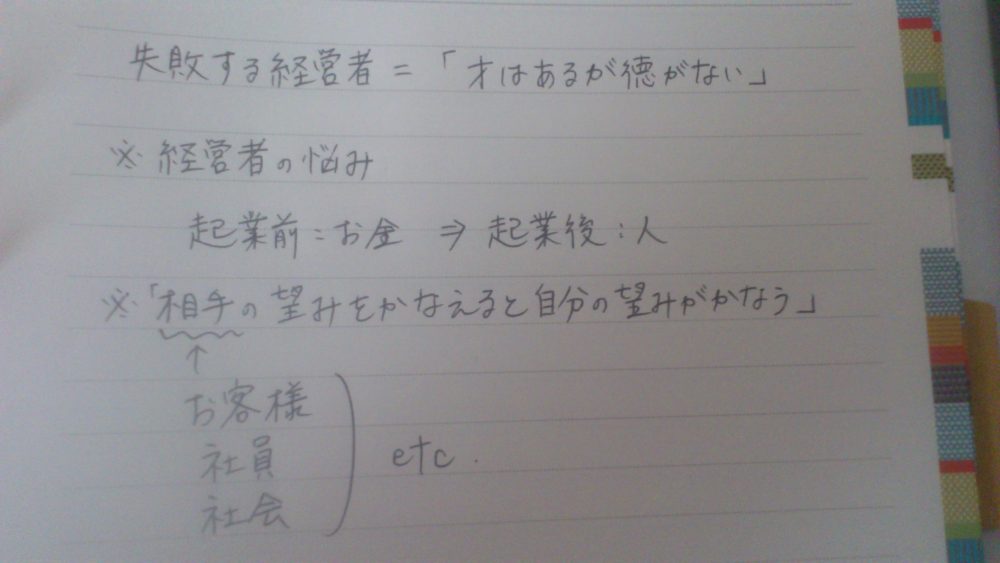 失敗する経営者=「才はあるが徳がない」
※経営者の悩み
起業前:お金 ⇒ 起業後:人
※「相手の望みをかなえると自分の望みがかなう」
↑
お客様
社員 etc.
社会